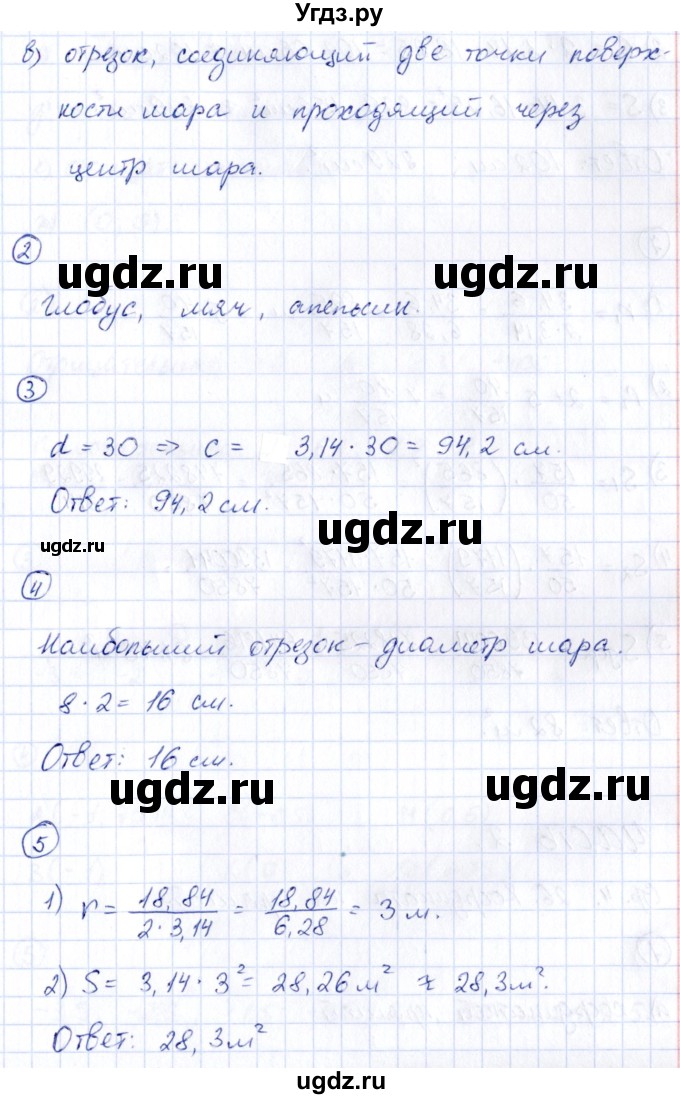 Угдз.ру
в) отрезок, соединяющий две точки поверх-
ности шара и проходящий через
центр шара.
2
ugdz.ru ugdz.ru
Глобус, мяч, апельсин.
3
d = 30 => c = 3,14 · 30 = 94,2 см.
Ответ: 94,2 см.
ugdz.ru
ugdz.ru
ugdz.ru
4
Наибольший отрезок - диаметр шара.
8 · 2 = 16 см.
Ответ: 16 см.
ugdz.ru ugdz.ru
5
1) r = 18,84 / 2 · 3,14 = 18,84 / 6,28 = 3 м.
2) S = 3,14 · 3² = 28,26 м² ≈ 28,3 м².
Ответ: 28,3 м²
ugdz.ru